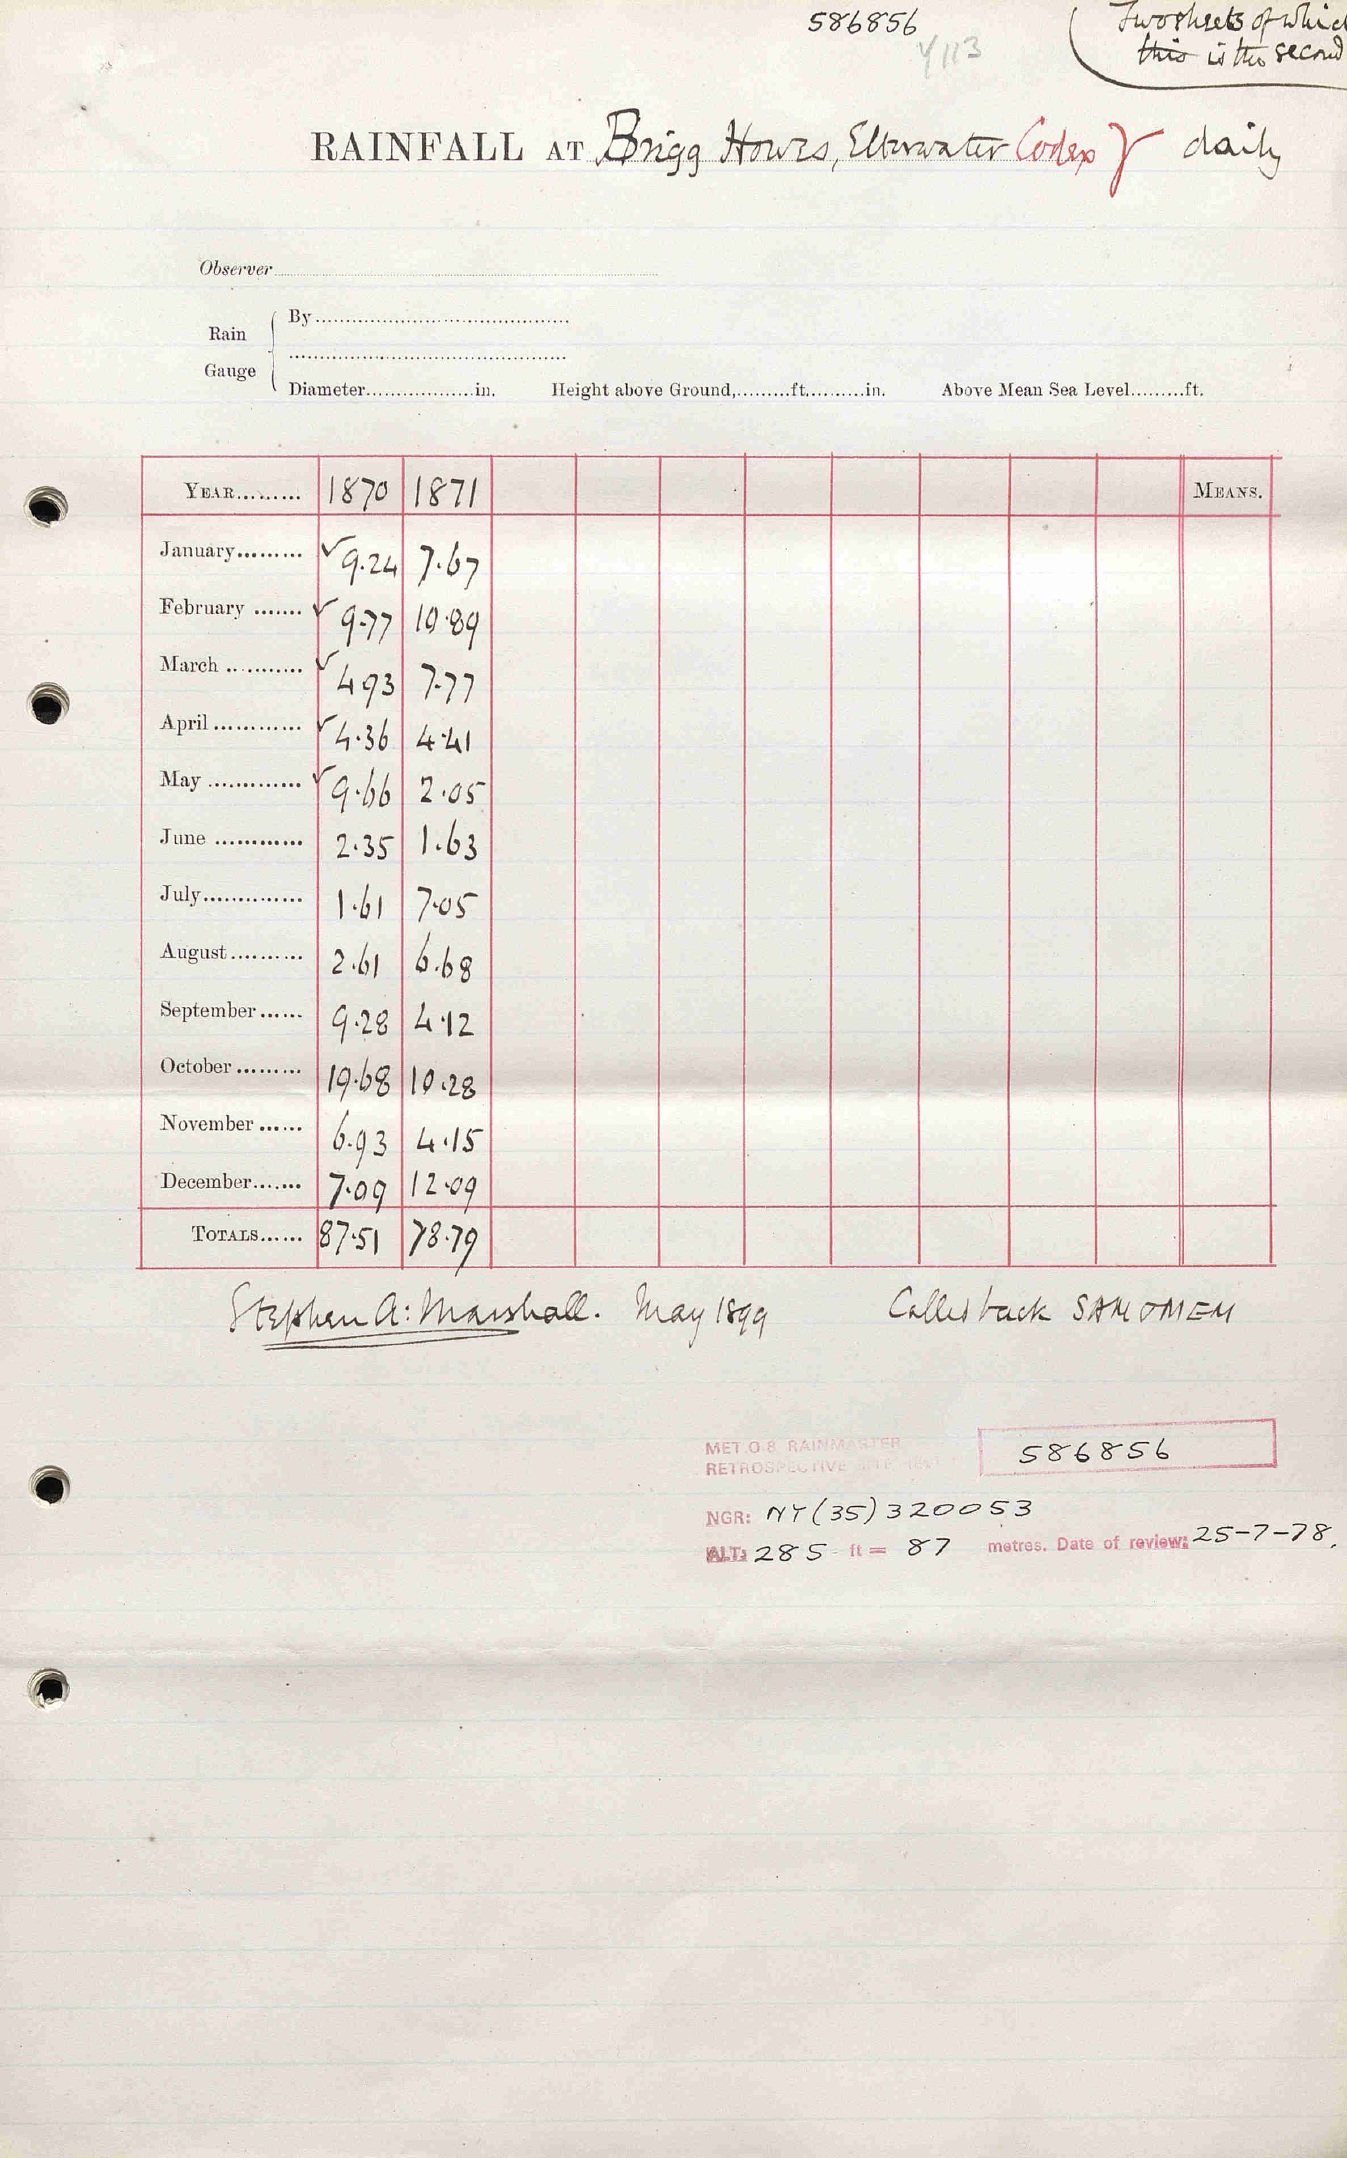 586856
Y113
Two sheets of which
this is the second
RAINFALL AT Brigg Howes, Elterwater Codex γ daily
Observer
Rain Gauge
By
Diameter in. Height above Ground, ft. in. Above Mean Sea Level ft.
YEAR 1870 1871 MEANS.
January 9.24 7.67
February 9.77 10.89
March 4.93 7.77
April 4.36 4.41
May 9.66 2.05
June 2.35 1.63
July 1.61 7.05
August 2.61 6.68
September 9.28 4.12
October 19.68 10.28
November 6.93 4.15
December 7.09 12.09
TOTALS 87.51 78.79
Stephen A: Marshall. May 1899 back
MET.O.8. RAINMASTER
RETROSPECTIVE
586856
NGR: NY (35) 320053
ALT: 285 ft = 87 metres. Date of review: 25-7-78.